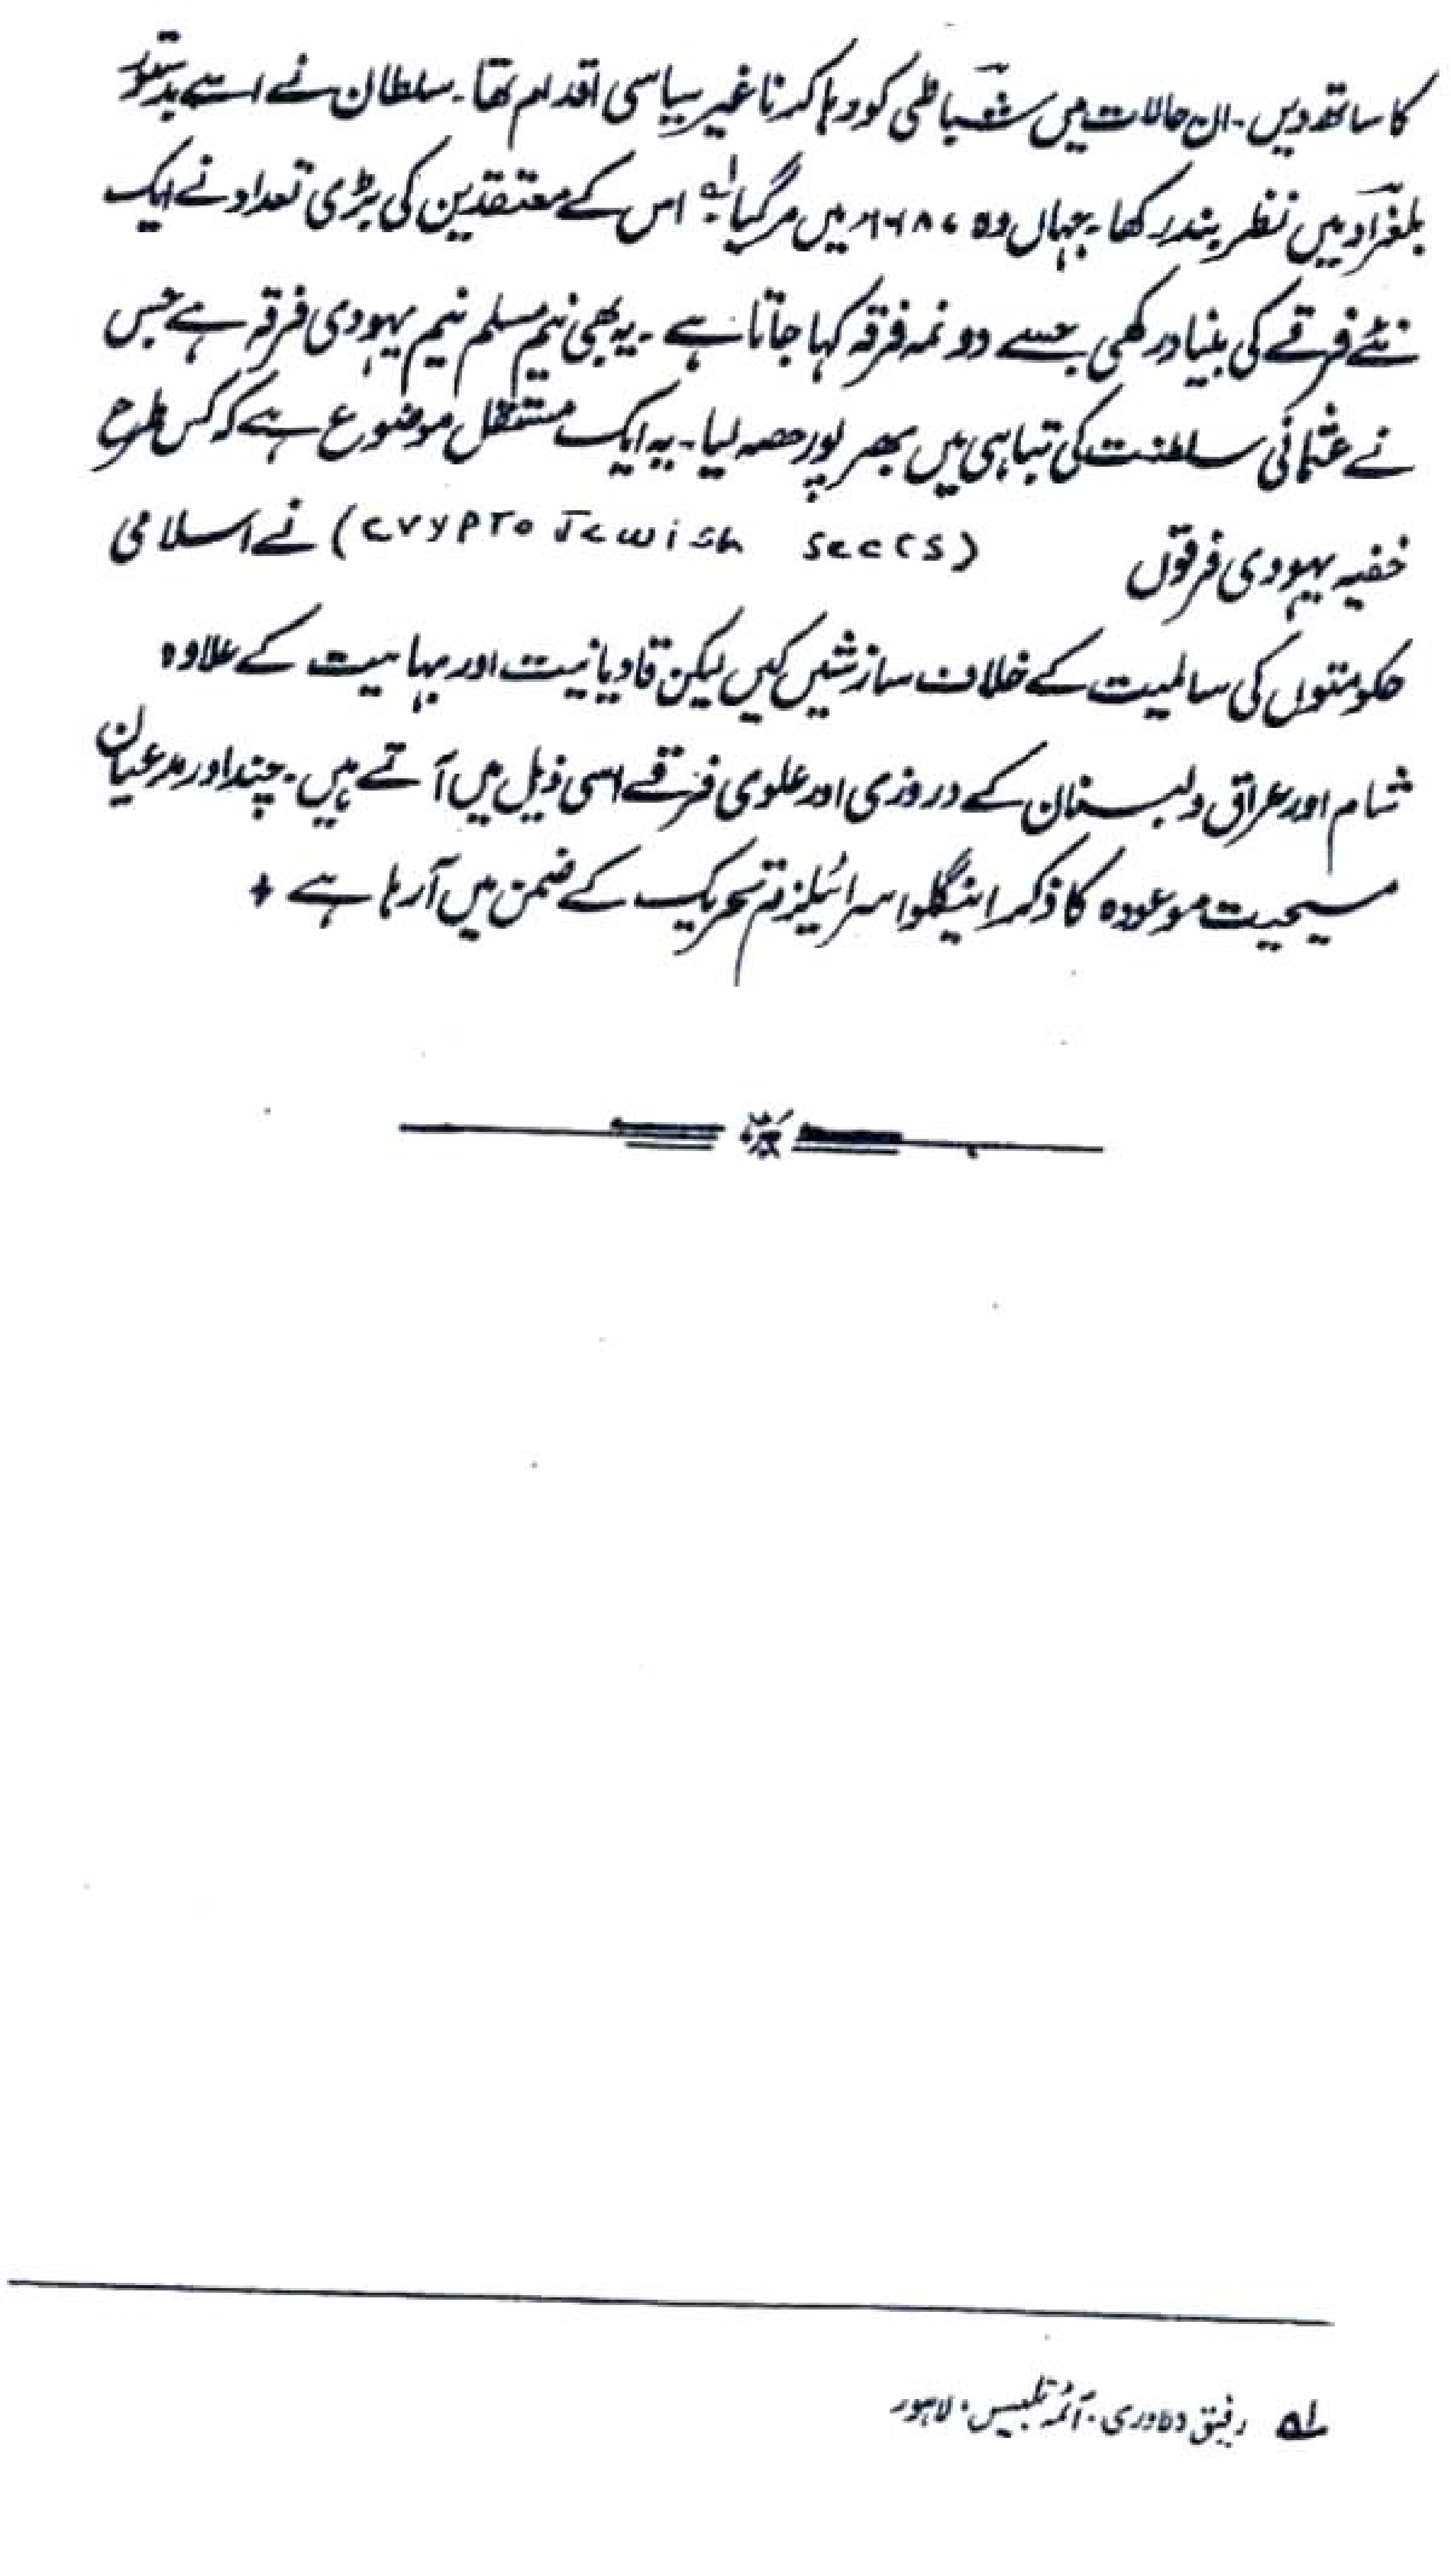 کا ساتھ دیں۔ ان حالات میں شباطی کو رہا کرنا غیر سیاسی اقدام تھا۔ سلطان نے اسے بدستور
بلغراد میں نظر بند رکھا۔ جہاں وہ میں مر گیا۔ اس کے معتقدین کی بڑی تعداد نے ایک
نئے فرقے کی بنیاد رکھی جسے دونمہ فرقہ کہا جاتا ہے۔ یہ بھی نیم مسلم نیم یہودی فرقہ ہے جس
نے عثمانی سلطنت کی تباہی میں بھر پور حصہ لیا۔ یہ ایک مستقل موضوع ہے کہ کس طرح
خفیہ یہودی فرقوں (crypto Jewish sects) نے اسلامی
حکومتوں کی سالمیت کے خلاف سازشیں کیں لیکن قادیانیت اور بہاہیت کے علاوہ
شام اور عراق و لبنان کے دروزی اور علوی فرقے اسی ذیل میں آتے ہیں۔ چند اور مدعیان
مسیحیت موعودہ کا ذکر اینگلو اسرائیلزم تحریک کے ضمن میں آ رہا ہے +
لہ رفیق دلاوری۔ آئمہ تلبیس۔ لاہور